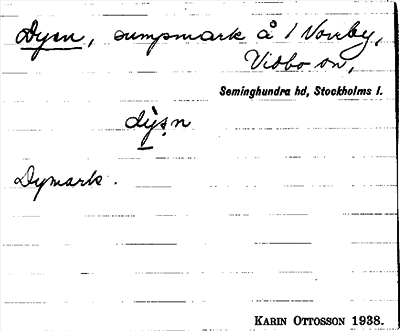 Dysn, sumpmark å 1 Norrby,
Vidbo sn,
Seminghundra hd, Stockholms l.
dỳṣn
Dymark.
KARIN OTTOSSON 1938.